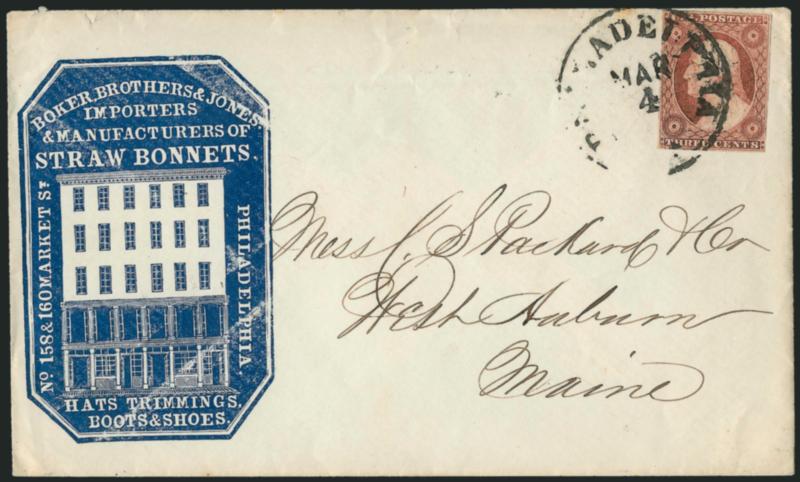 BOKER, BROTHERS & JONES,
IMPORTERS
& MANUFACTURERS OF
STRAW BONNETS.
No 158 & 160 MARKET ST
PHILADELPHIA
HATS TRIMMINGS,
BOOTS & SHOES.
PHILADELPHIA
MAR
4
POSTAGE
THREE CENTS
Mess S Packard & Co
West Auburn
Maine